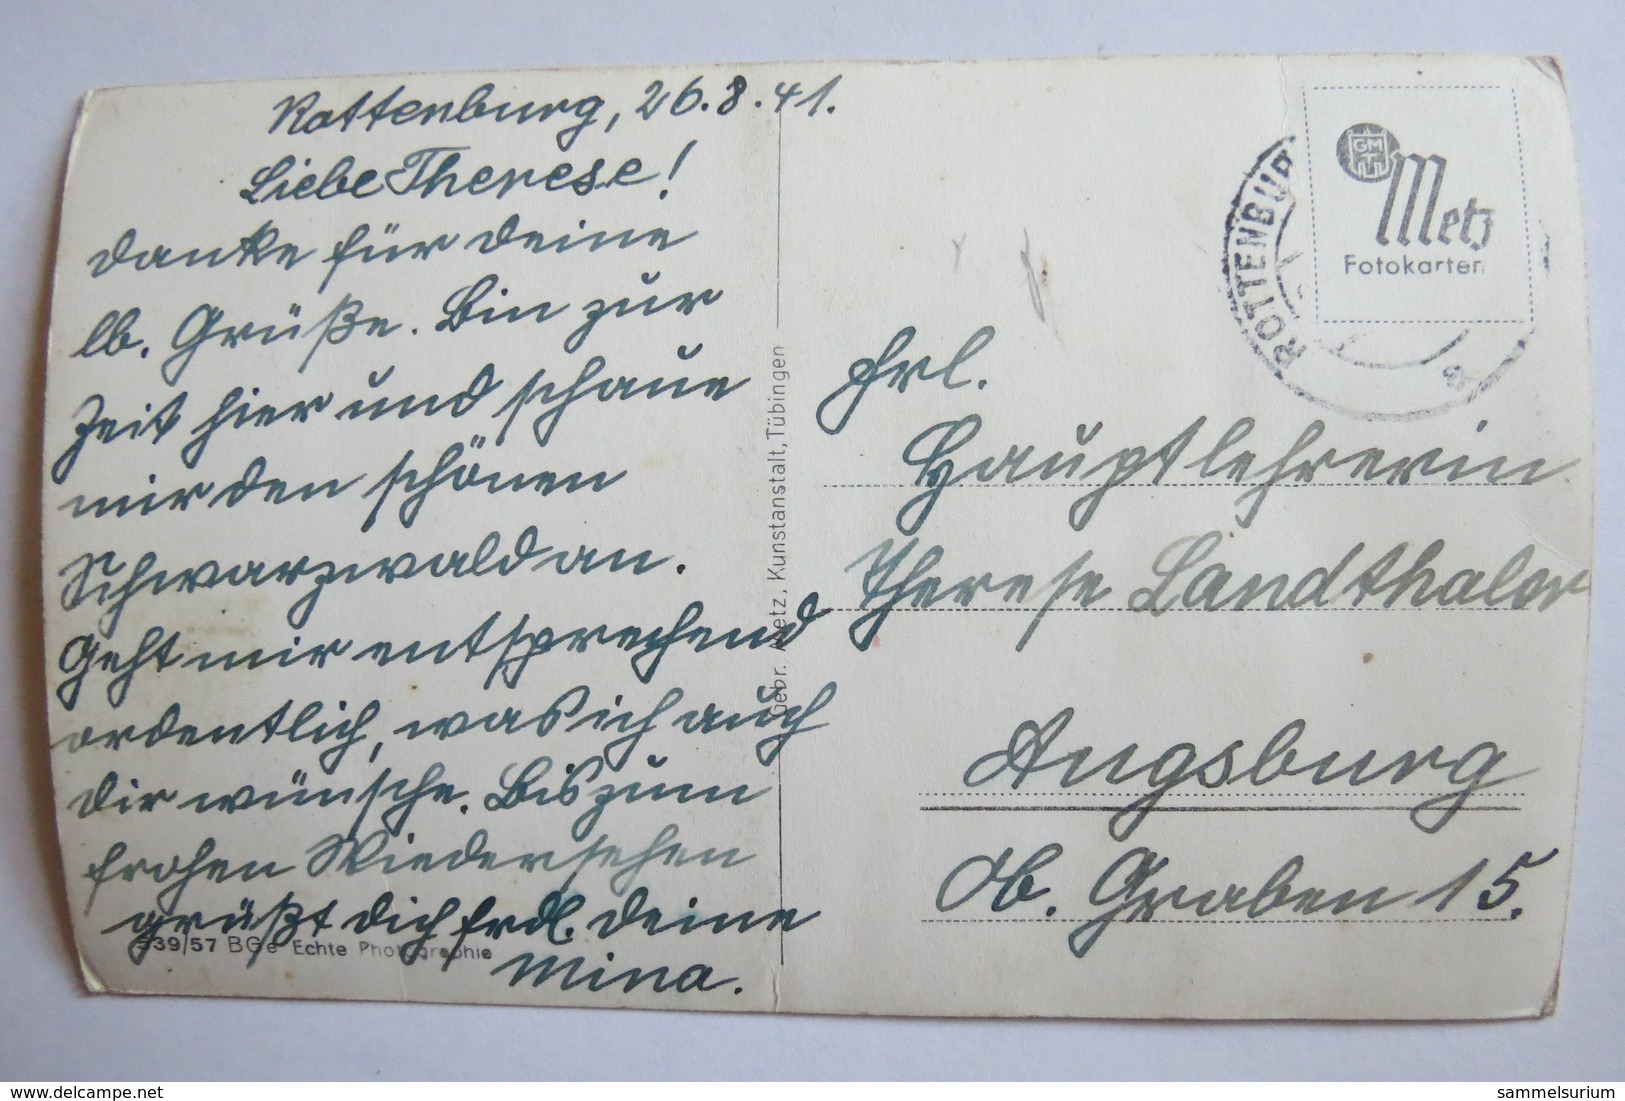 Rottenburg, 26.8.41.
Liebe Therese!
Danke für Deine
lb. Grüße. Bin zur
Zeit hier und schaue
mir den schönen
Schwarzwald an.
Geht mir entsprechend
ordentlich, was ich auch
Dir wünsche. Bis zum
frohen Wiedersehen
grüßt Dich frdl. Deine
Mina.
539/57 BGe Echte Photographie
Gebr. Metz, Kunstanstalt, Tübingen
ROTTENBUR
GMT
Metz
Fotokarten
a
Frl.
Hauptlehrerin
Therese Landthaler
Augsburg
Ob. Graben 15.
delcampe.net
sammelsurium